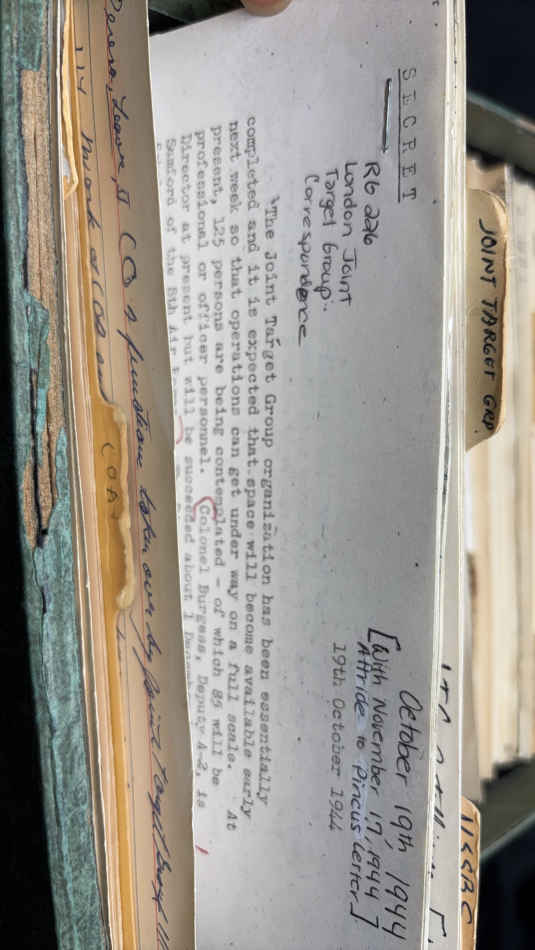 SECRET
October 19th, 1944
[With November 17, 1944
Attride to Pincus Letter]
19th October 1944
R6 226
London Joint
Target Group:
Correspondence
The Joint Target Group organization has been essentially
completed and it is expected that space will become available early
next week so that operations can get under way on a full scale. At
present, 125 persons are being contemplated - of which 85 will be
professional or officer personnel. Colonel Burgess, Deputy A-2, is
Director at present but will be succeeded about 1
Samford of the 8th Air
JOINT TARGET GRP.
functions taken over by Joint Target Group
COA